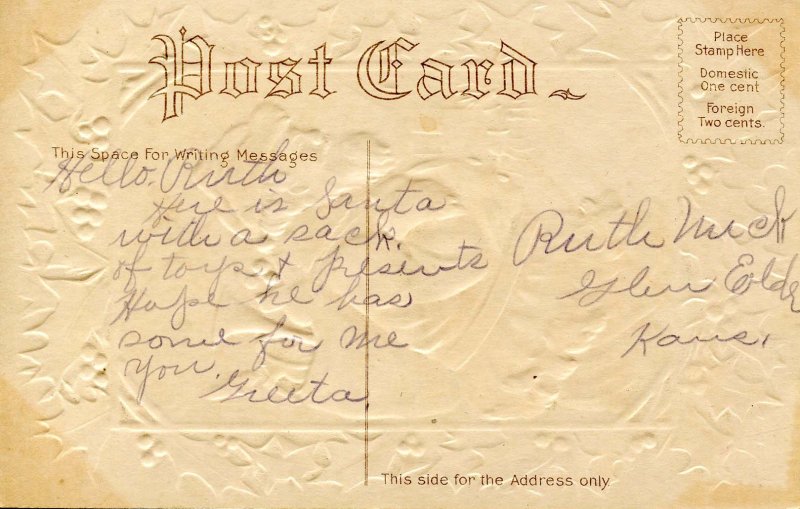 Post Card
Place
Stamp Here
Domestic
One cent
Foreign
Two cents.
This Space For Writing Messages
Hello. Ruth
Here is Santa
with a sack.
of toys & presents
Hope he has
some for me
you.
Greeta
Ruth
Glen Elder
Kans.
This side for the Address only